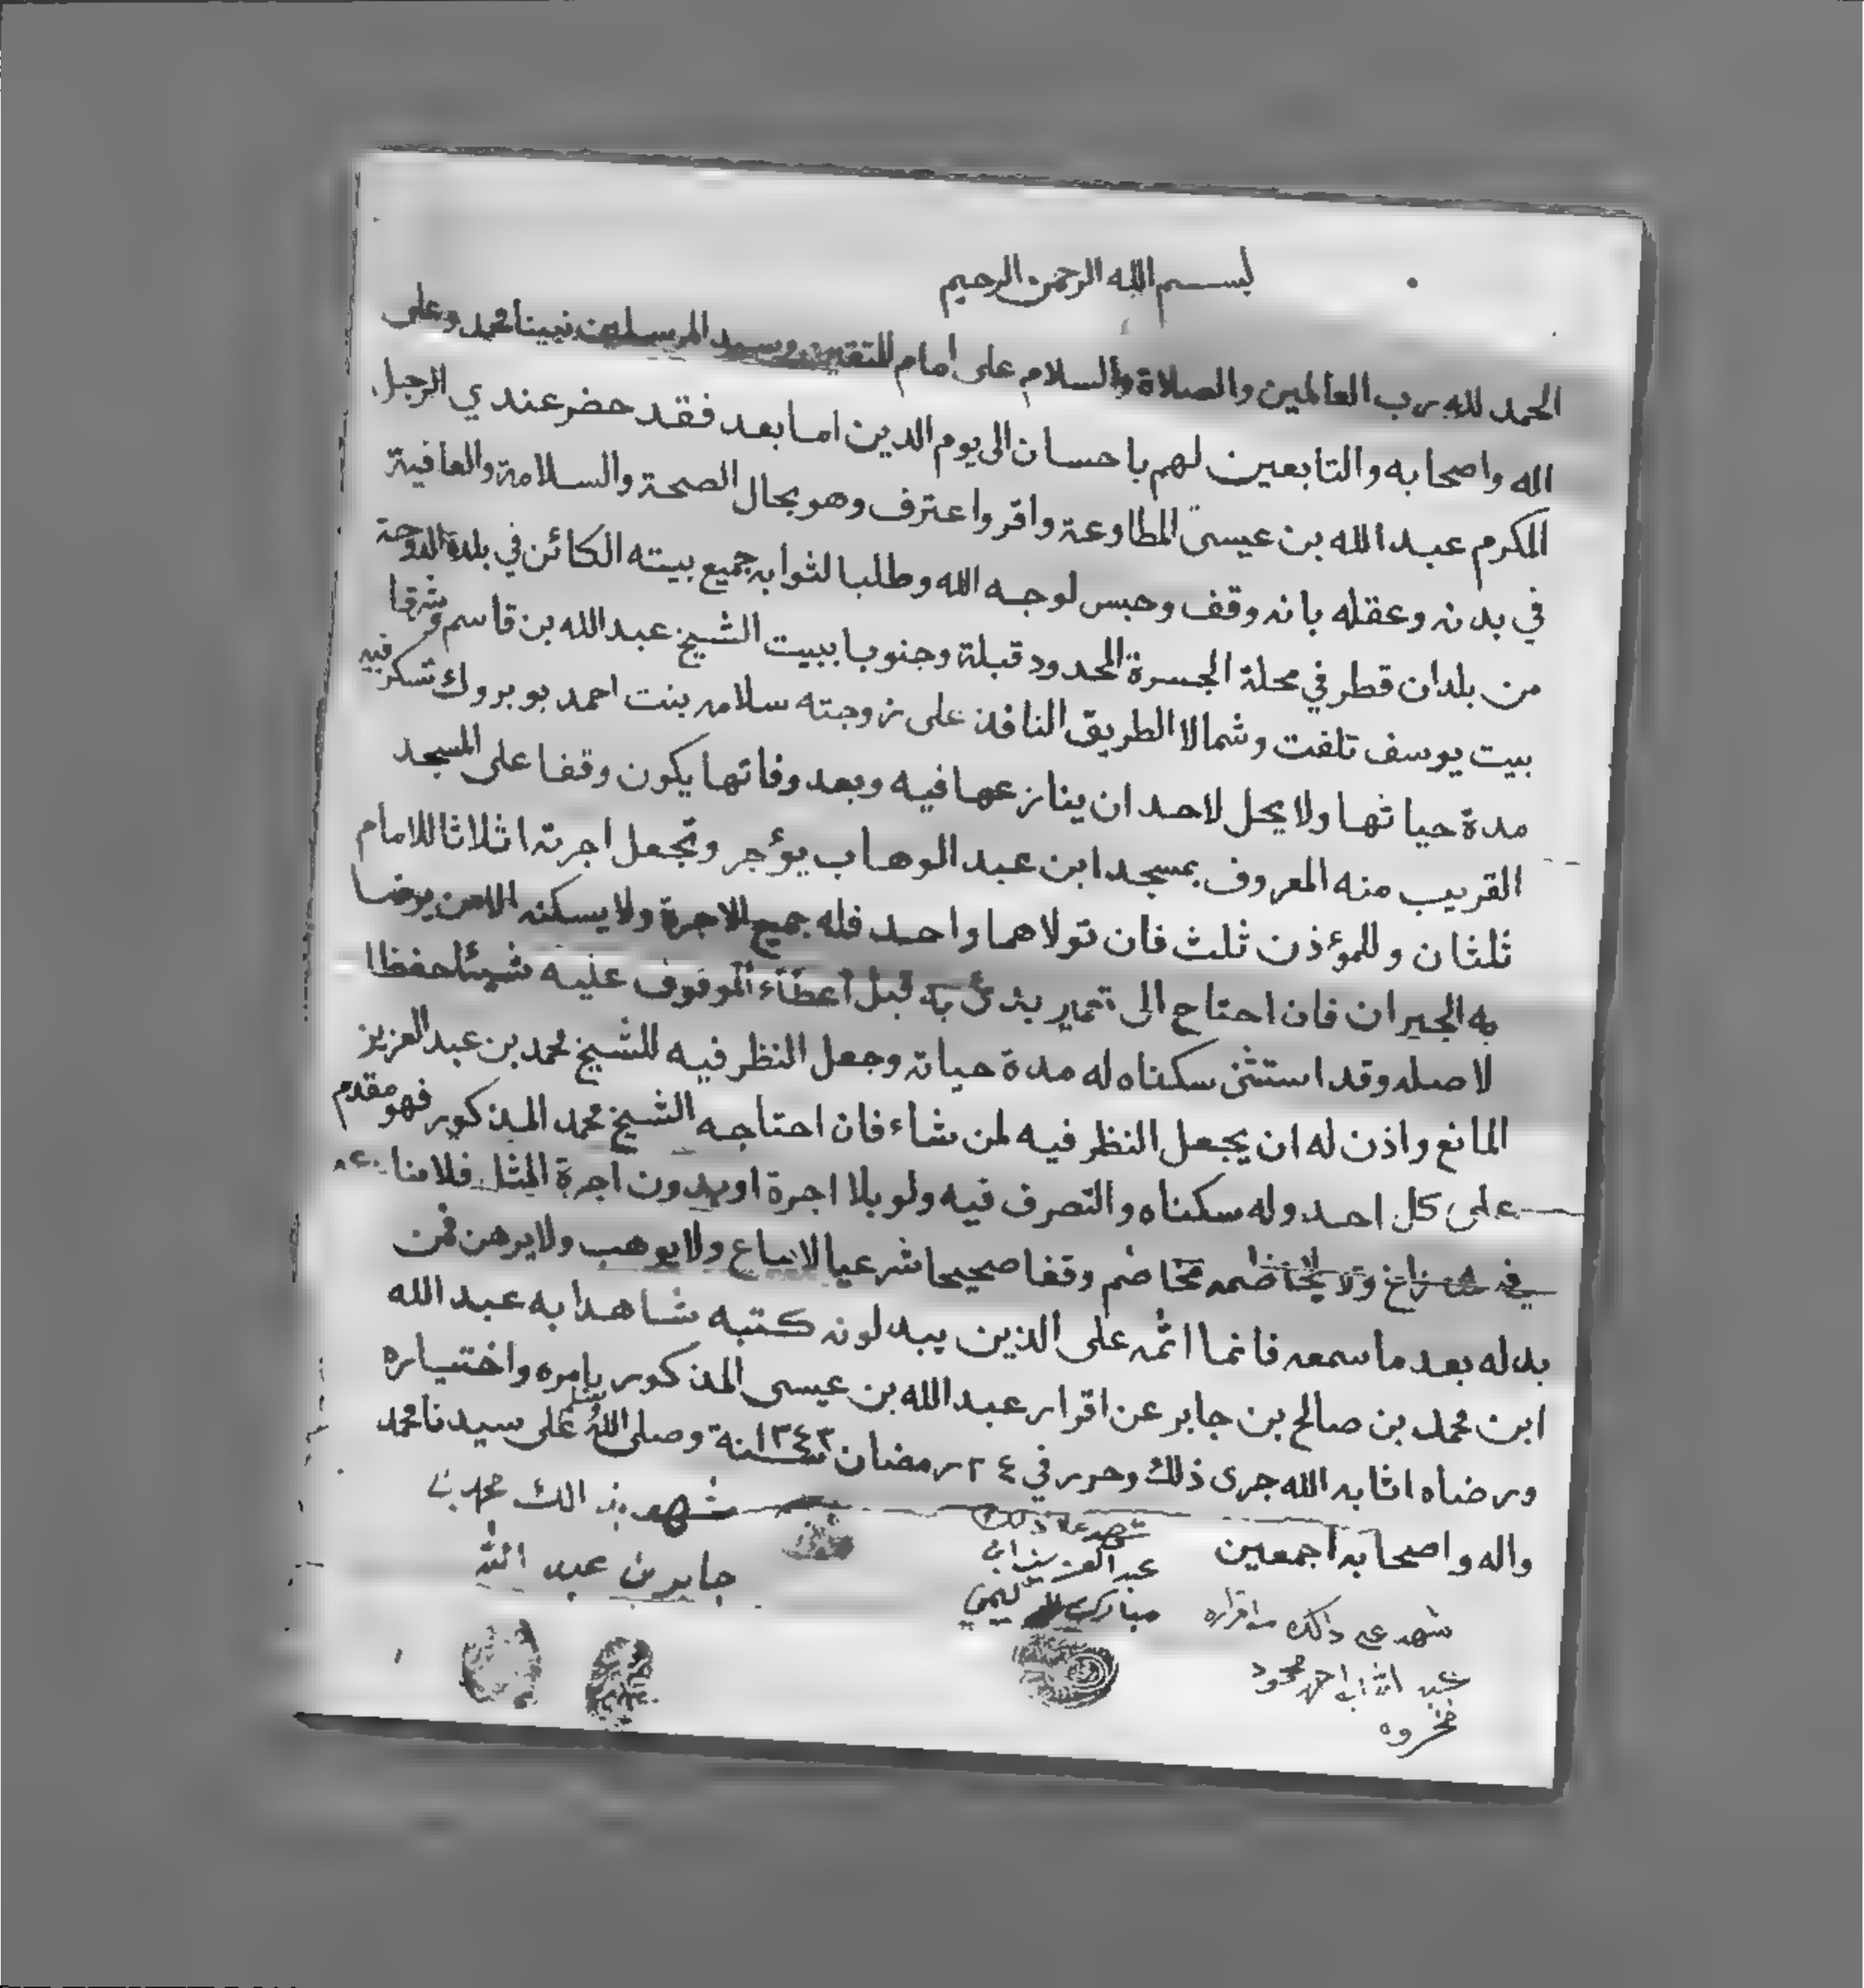 بسم الله الرحمن الرحيم
الحمد لله رب العالمين والصلاة والسلام على امام المتقين وسيد المرسلين نبينا محمد وعلى
اله واصحابه والتابعين لهم باحسان الى يوم الدين اما بعد فقد حضر عندي الرجل
المكرم عبد الله بن عيسى المطاوعة واقر واعترف وهو بحال الصحة والسلامة والعافية
في بدنه وعقله بانه وقف وحبس لوجه الله وطلبا لثوابه جميع بيته الكائن في بلدة الدوحة
من بلدان قطر في محلة الجسرة المحدود قبلة وجنوبا ببيت الشيخ عبد الله بن قاسم وشرقا
بيت يوسف تلفت وشمالا الطريق النافذ على زوجته سلامه بنت احمد بو بروك تسكن فيه
مدة حياتها ولا يحل لاحد ان ينازعها فيه وبعد وفاتها يكون وقفا على المسجد
القريب منه المعروف بمسجد ابن عبد الوهاب يؤجر وتجعل اجرته اثلاثا للامام
ثلثان وللمؤذن ثلث فان تولاهما واحد فله جميع الاجرة ولا يسكنه الا من يرضا
به الجيران فان احتاج الى تعمير بدئ به قبل اعطاء الموقوف عليه شيئا حفظا
لاصله وقد استثنى سكناه له مدة حياته وجعل النظر فيه للشيخ محمد بن عبد العزيز
المانع واذن له ان يجعل النظر فيه لمن شاء فان احتاجه الشيخ محمد المذكور فهو مقدم
على كل احد وله سكناه والتصرف فيه ولو بلا اجرة او بدون اجرة المثل فلا
ولا يخاصمه مخاصم وقفا صحيحا شرعيا لا يباع ولا يوهب ولا يرهن فمن
بدله بعد ما سمعه فانما اثمه على الذين يبدلونه كتبه شاهدا به عبد الله
ابن محمد بن صالح بن جابر عن اقرار عبد الله بن عيسى المذكور بامره واختياره
ورضاه اثابه الله جرى ذلك وحرر في ٢٤ رمضان سنة ١٣٤٣ وصلى الله على سيدنا محمد
واله واصحابه اجمعين
شهد على ذلك
عبد العزيز ابن
مبارك
شهد بذالك محمد بن
جابر بن عبد الله
شهد على ذالك
عبد الله ابن احمد محمود
فخروه